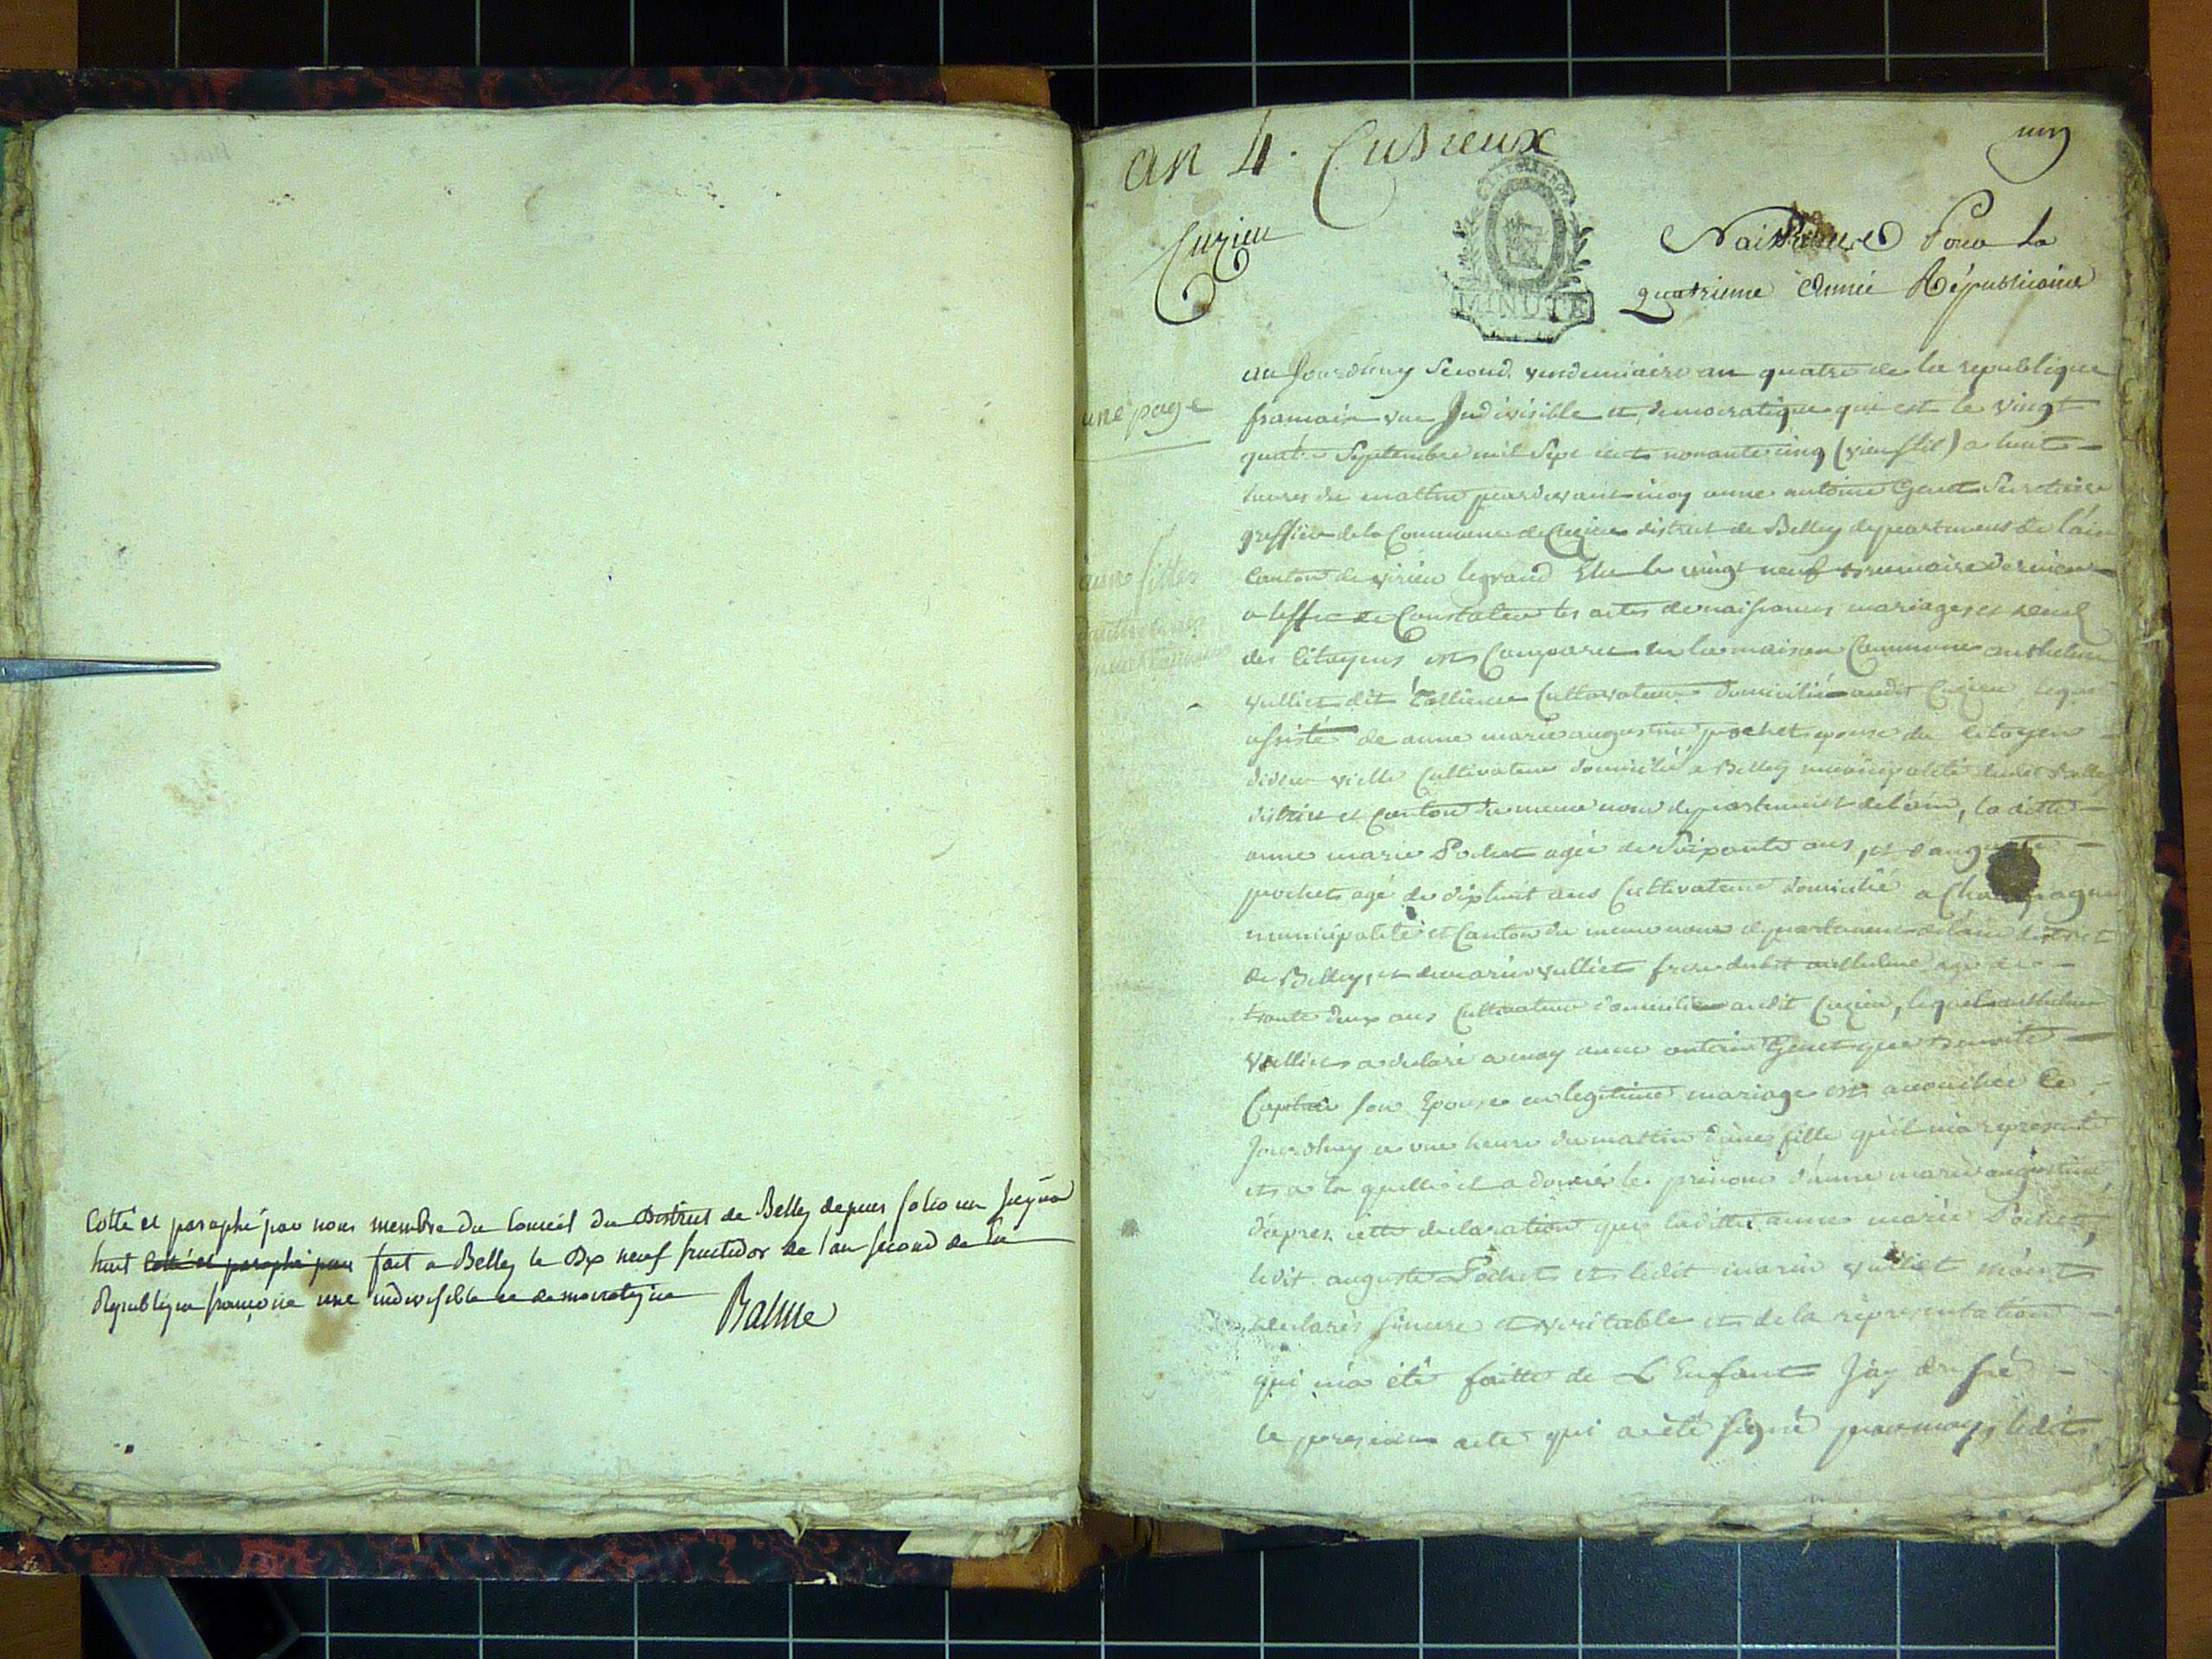 Cotté et paraphé par nous membre du Conseil du District de Belley depuis folio un jusqua
huit cotté et paraphé par fait a Belley le Dix neuf fructidor de l'an second de la
Republique françoise une indivisible et democratique
Balme
an 4. Cusieux
un
Cuzieu
MINUTE
Naissances Pour la
quatrieme Année Républicaine
une page
aujourdhuy second vendemiaire an quatre de la republique
francaise une Indivisible et democratique qui est le vingt
quatre Septembre mil Sept cents nonante cinq (vieu stil) a huit
heures du mattin pardevant moy anne antoine Genet Secretaire
greffier de la Commune de Cuzieu district de Belley departement de l'ain
Canton de virieu legrand Elu le vingt neuf brumaire dernier
a leffet de Constater les actes de naissances mariages et deces
des Citoyens est Comparu en la maison Commune anthelme
vulliet dit Cultivateur domicilié audit Cuzieu lequel
assisté de anne marie augustine pochet epouse du Citoyen
vielle Cultivateur domicilié a Belley municipalité dudit Belley
district et Canton du meme nom departement de l'ain, la ditte
anne marie Pochet agée de Soixante ans, et d'auguste
pochet agé de dixhuit ans Cultivateur domicilié a Champagne
municipalité et Canton du meme nom departement de l'ain district
de Belley, et de marin vulliet frere dudit anthelme agé de
trante deux ans Cultivateur domicilié audit Cuzieu, lequel anthelme
vulliet a declaré a moy anne antoine Genet que benoite
son Epouse en legitime mariage est accouchée Ce
Jourdhuy a une heure du mattin d'une fille qu'il m'a representé
et a la quelle il a donné le prenom d'anne marie augustine
d'apres cette declaration que laditte anne marie Pochet,
ledit auguste Pochet et ledit marin vulliet m'ont
declarés sincere et veritable et de la representation
qui m'a été faitte de L'Enfant J'ay dressé
le present acte qui a été signé par moy, ledit